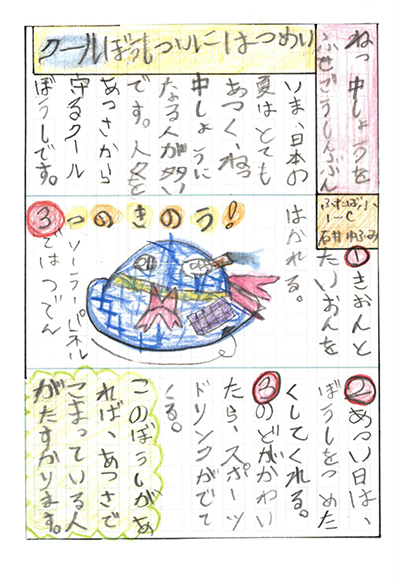 ねっ中しょうを
ふせごうしんぶん
ふたば小
1-C
石井ゆふみ
クールぼうしついにはつめい
いま、日本の
夏はとても
あつく、ねっ
中しょうに
なる人が多い
です。人々を
あつさから
守るクール
ぼうしです。
3つのきのう!
①きおんと
たいおんを
はかれる。
ソーラーパネル
ではつでん
②あつい日は、
ぼうしをつめた
くしてくれる。
③のどがかわい
たら、スポーツ
ドリンクがでて
くる。
このぼうしがあ
れば、あつさで
こまっている人
がたすかります。